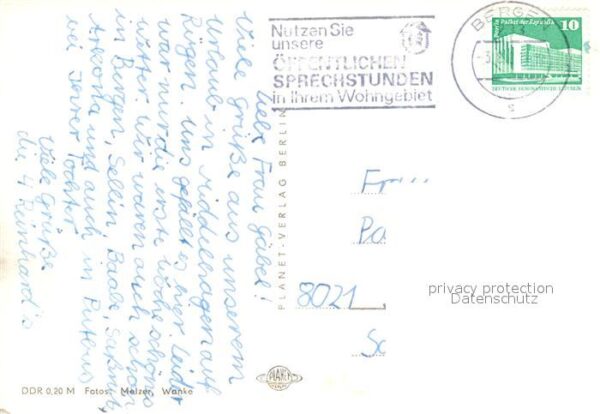 Liebe Frau Gäbel!
Viele Grüße aus unserem
Urlaub in Middelhagen auf
Rügen. Uns gefällt es hier. Leider
war nur die erste Woche schönes
Wetter. Wir waren auch schon
in Bergen, Sellin, Baabe, Saßnitz,
Arkona und auch in Putbus
bei Ihrer Tochter.
Viele Grüße
die 4 Reinhard's
Nutzen Sie
unsere
ÖFFENTLICHEN
SPRECHSTUNDEN
in Ihrem Wohngebiet
BERGE
Palast der Republik
10
DEUTSCHE DEMOKRATISCHE REPUBLIK
PLANET-VERLAG BERLIN
8021
privacy protection
Datenschutz
PLANET
DDR 0,20 M Fotos: Melzer, Wanke